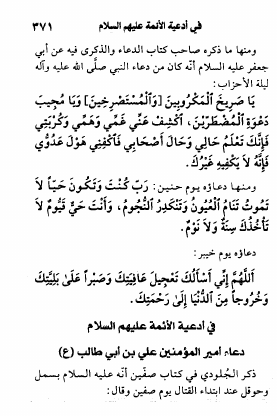 في أدعية الأئمة عليهم السلام ٣٧١
ومنها ما ذكره صاحب كتاب الدعاء والذكرى فيه عن أبي
جعفر عليه السلام أنّه كان من دعاء النبي صلَّى الله عليه وآله
ليلة الأحزاب:
يَا صَرِيخَ الْمَكْرُوبِينَ [وَالْمُسْتَصْرِخِينَ] وَيَا مُجِيبَ
دَعْوَةِ الْمُضْطَرِّينَ، اكْشِفْ عَنِّي غَمِّي وَهَمِّي وَكُرْبَتِي
فَإِنَّكَ تَعْلَمُ حَالِي وَحَالَ أَصْحَابِي فَاكْفِنِي هَوْلَ عَدُوِّي
فَإِنَّهُ لَا يَكْفِيهِ غَيْرُكَ.
ومنها دعاؤه يوم حنين: رَبِّ كُنْتَ وَتَكُونَ حَيّاً لَا
تَمُوتُ تَنَامُ الْعُيُونُ وَتَنْكَدِرُ النُّجُومُ، وَأَنْتَ حَيٌّ قَيُّومٌ لَا
تَأْخُذُكَ سِنَةٌ وَلَا نَوْمٌ.
دعاؤه يوم خيبر:
اَللَّهُمَّ إِنِّي أَسْأَلُكَ تَعْجِيلَ عَافِيَتِكَ وَصَبْراً عَلَىٰ بَلِيَّتِكَ
وَخُرُوجاً مِنَ الدُّنْيَا إِلَىٰ رَحْمَتِكَ.
في أدعية الأئمة عليهم السلام
دعاء أمير المؤمنين علي بن أبي طالب (ع)
ذكر الجُلودي في كتاب صفّين أنّه عليه السلام بسمل
وحوقل عند ابتداء القتال يوم صفين وقال: